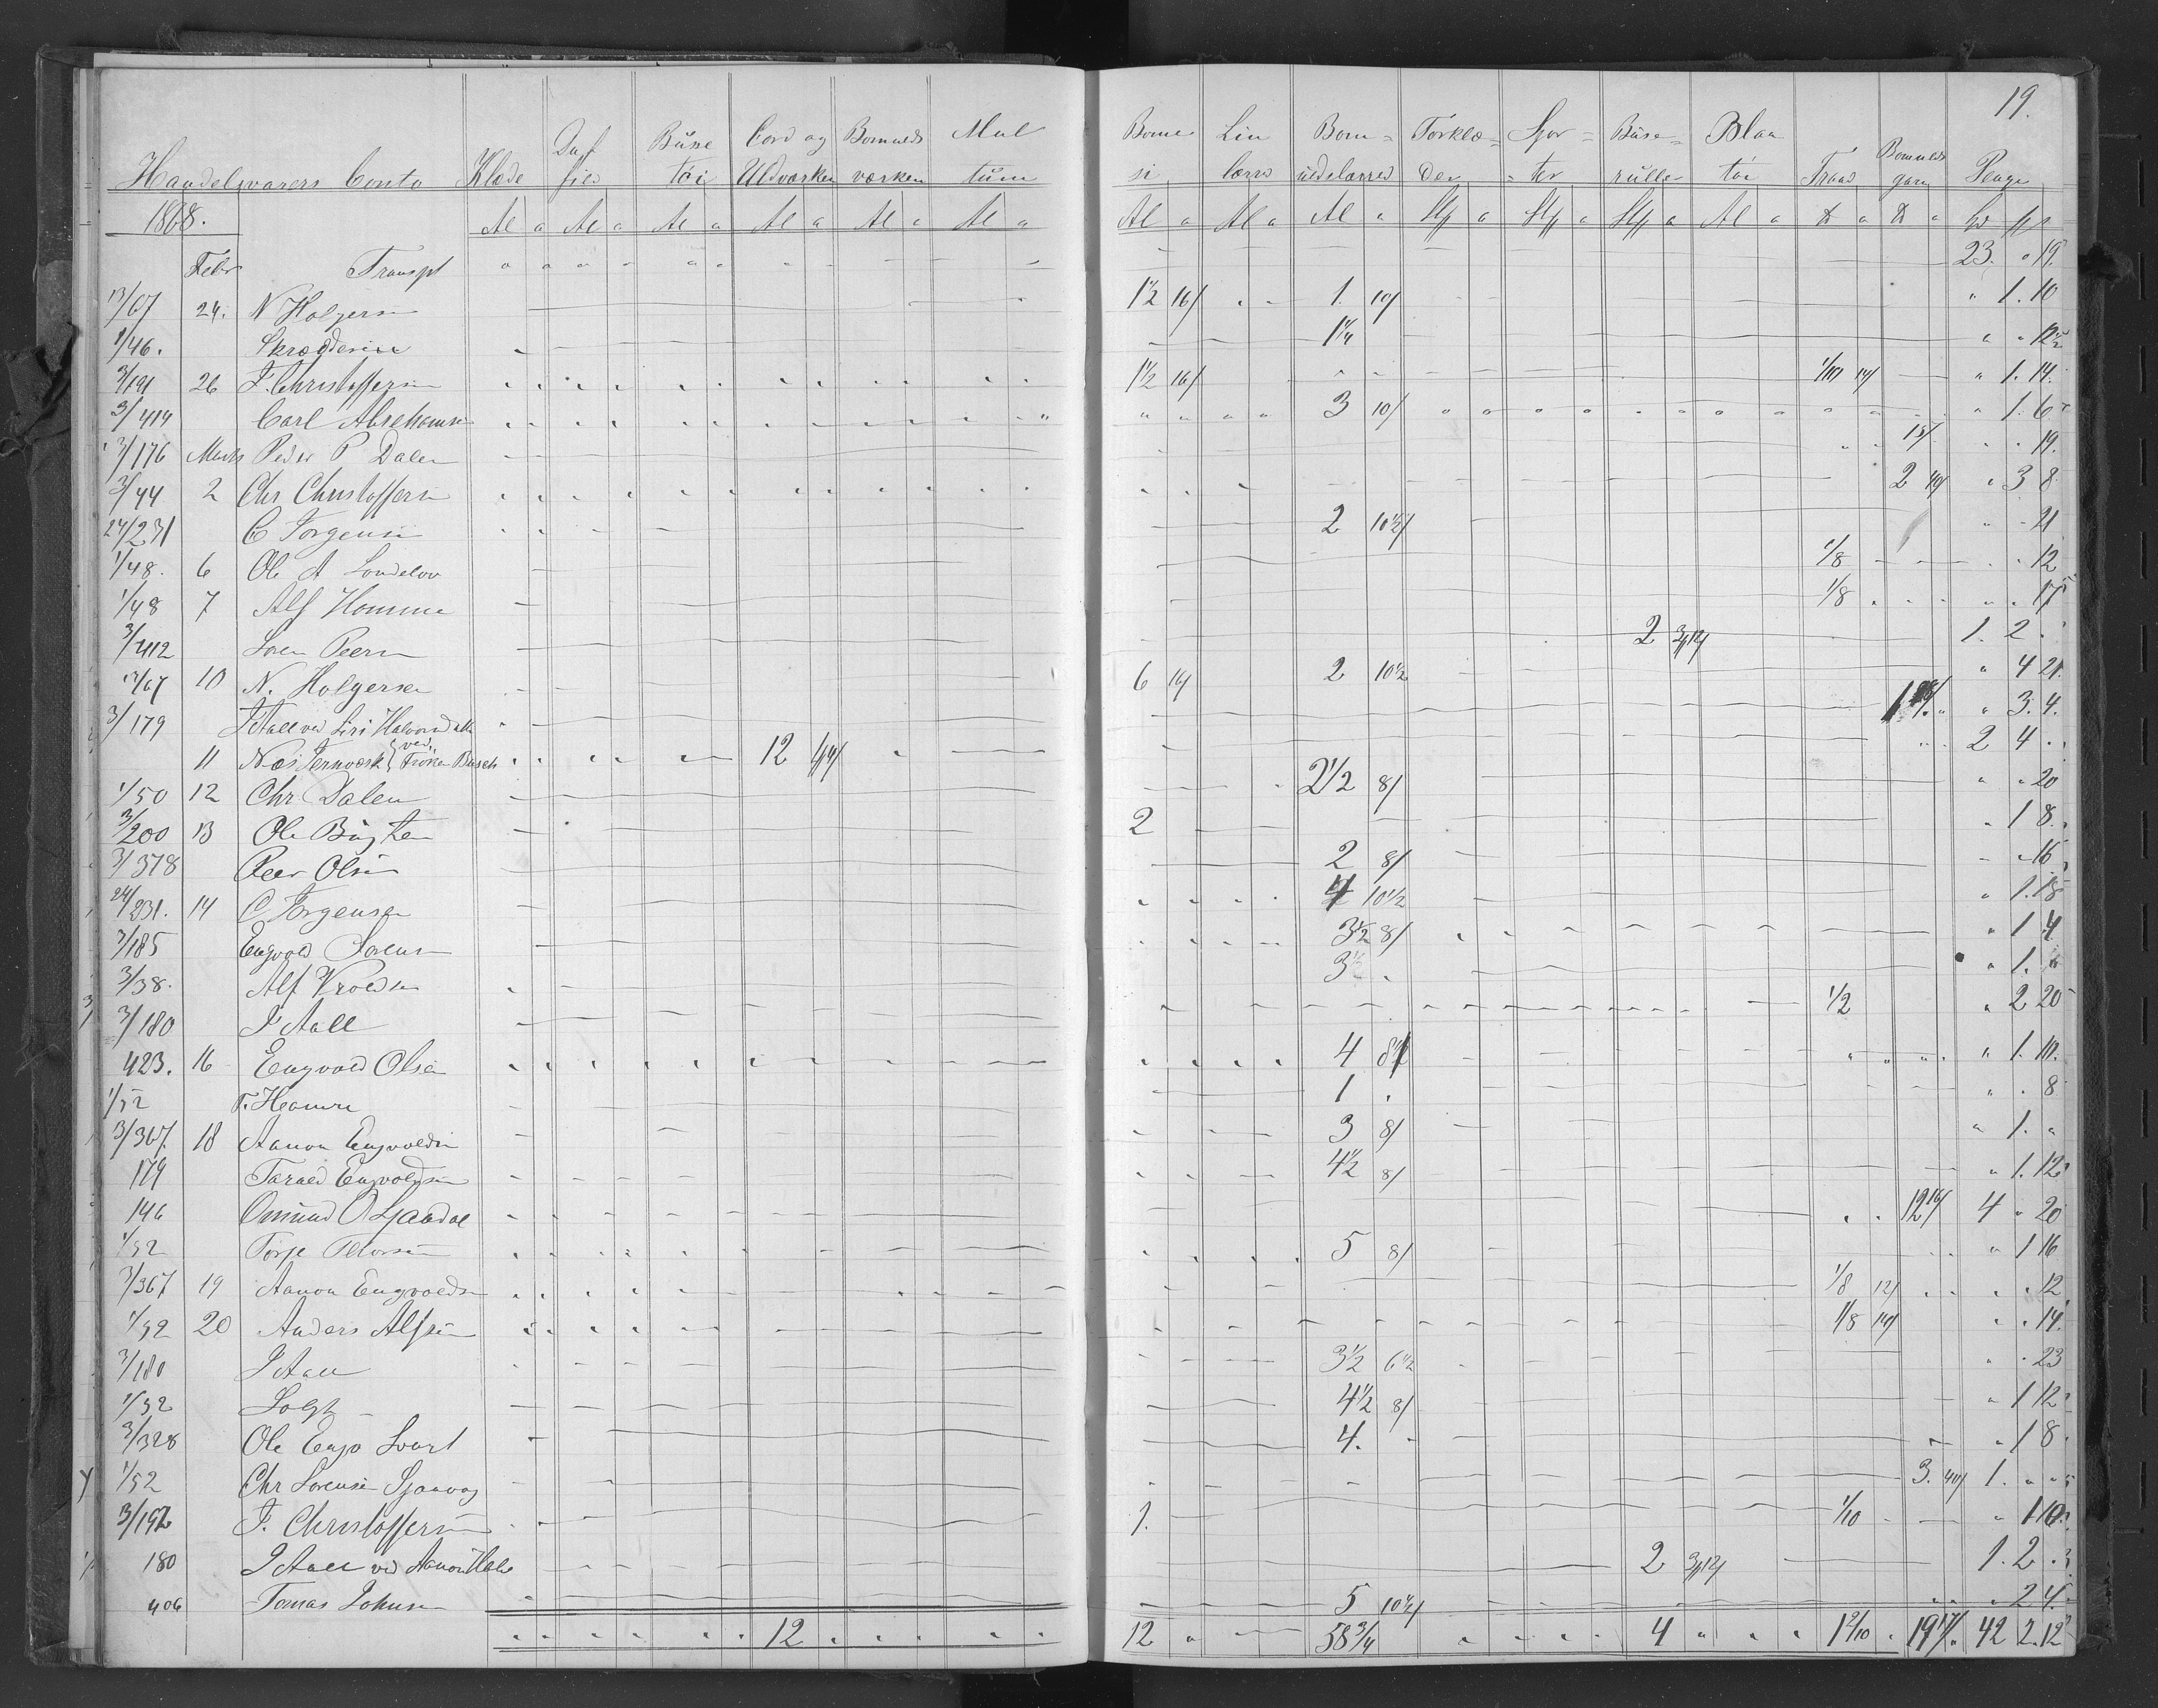 19.
Handelsvarers Conto Klæde Duf fies Buxe töi Cord og Uldværken Bomulds værken Mul tum Bome si Lin lærred Bom= uldslærred Törklæ= der Sjor= =ter Buse= rulle Blaa töi Traad Bomulds garn Penge
1868. Al a Al a Al a Al a Al a Al a Al a Al a Al a St a St a St a Al a ℔ a ℔ a
Febr Transpt 23. " 19.
13/67 24. N Holgersen 1½ 16/ 1. 10/ " 1. 10
1/46. Skrædderen 1¼ " " 12½
3/191 26 F. Christoffersen 1½ 16/ 1/10 14/ " 1. 14.
3/414 Carl Abrahamsen 3 10/ " 1. 6
3/176 Marts Peder P Dalen 19.
3/44 2 Chr Christoffersen 2 19/ " 3 8
24/231 C Jorgensen 2 10½/ " 21
1/48. 6 Ole A Londelov 1/8 12
1/48 7 Alf Homme 1/8 17
3/412 Soren Peersen 2 3/12/ 1. 2 .
13/67 10 N. Holgersen 6 16/ 2 10½ " 4 21.
3/179 J Aall ved Siri Halvorsdatter " 3. 4.
11 Næs Jernværk ved Frøken Busch 12 2 4 .
1/50 12 Chr Dalen 2½ 8/ " " 20
3/200 13 Ole Buxten 2 " 1 8.
3/378 Peer Olsen 2 8/ 16
24/231. 14 C Jorgensen 4 10½ " 1. 18
3/185 Engvold Sorensen 3½ 8/ " 1 4
3/38. Alf Vroldsen 3½ " 1. "
3/180 J Aall 1/2 " 2 20
423. 16 Engvold Olsen 4 8½ " 1. 10.
1/52 T. Heamre 1 " . 8
3/367. 18 Aanon Engvoldsen 3 8/ " 1. "
179 Tarald Engvoldsen 4½ 8/ " 1. 12
146 Omund O Gaardal 12 16/ 4 " 20
1/52 Torje Tellevsen 5 8/ " 1 16
3/367 19 Aanon Engvoldsen 1/8 12/ 12
1/52 20 Anders Alfsen 1/8 14/ 14.
3/180 J Aall 3½ 6½ 23
1/52 Solgt 4½ 8/ " 1 12
3/328 Ole Engv Svart 4. " 1 8
1/52 Chr Sorensen Sjaavog 3. 40/ 1. " "
3/192 F. Christoffersen 1. 1/10 " 1 10
180 J Aall ved Aanon Helle 2 3/12/ 1. 2 .
406 Tomas Johnsen 5 10½/ " 2 4.
12 12 58¾ 4 1 9/10 42 2. 12